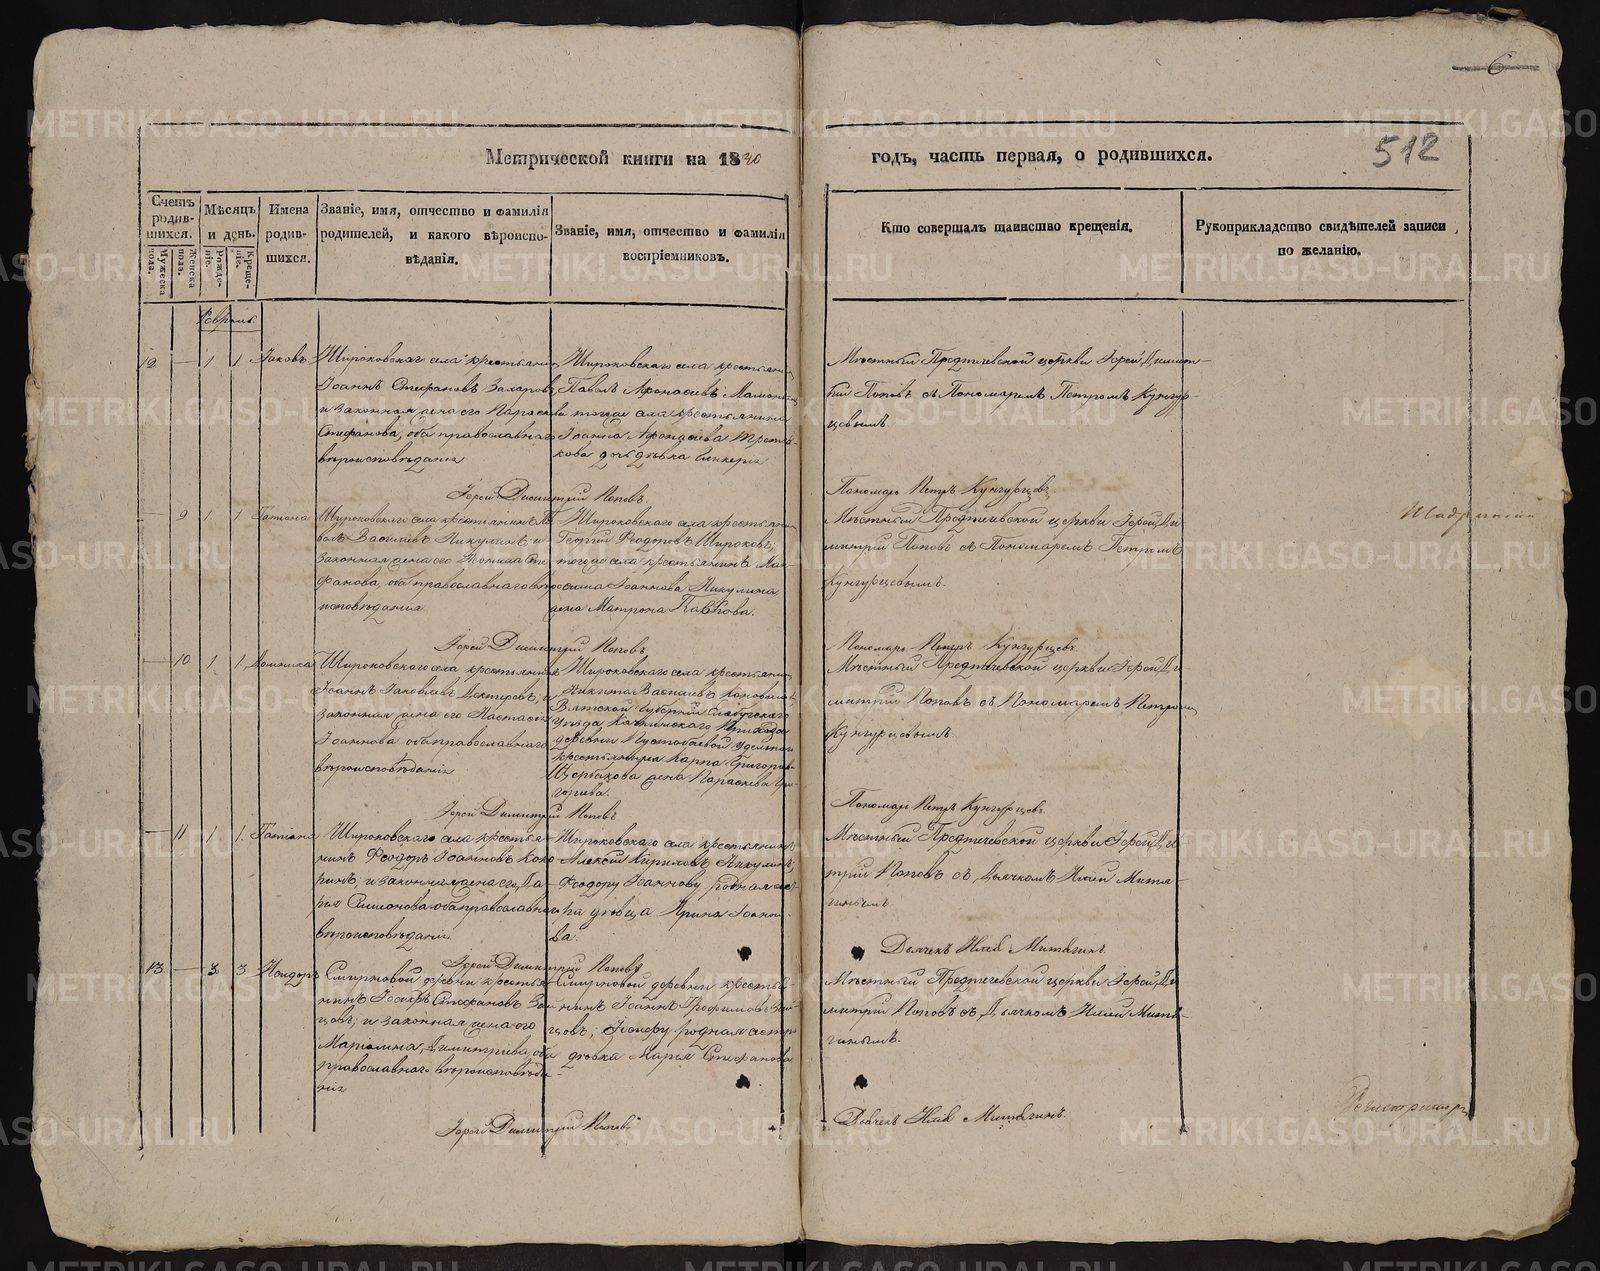 6
512
Метрической книги на 1840
годъ, часть первая, о родившихся.
Счетъ родив-шихся.
Мужеска пола.
Женска пола.
Мѣсяцъ и день.
Рожде-ніе.
Креще-ніе.
Имена родив-шихся.
Званіе, имя, отчество и фамилія родителей, и какого вѣроиспо-вѣданія.
Званіе, имя, отчество и фамилія воспріемниковъ.
Кто совершалъ таинство крещенія.
Рукоприкладство свидѣтелей записи по желанію.
Февраль.
12 — 1 1 Іаковъ
Широковскаго села крестьянин
Іоаннъ Стефановъ Захаровъ,
и законная жена его Параскева
Стефанова, оба православнаго
вѣроисповѣданія
Широковскаго села крестьянин
Павелъ Афонасіевъ
тогоже села крестьянина
Іоанна Афонасіева Третья-
кова дочь дѣвка Гликерія
Мѣстный Предтичевской церкви Іерей Димит-
рій Поповъ съ Пономаремъ Петромъ Кунгур-
цовымъ
Іерей Димитрій Поповъ.
Пономарь Петръ Кунгурцовъ
— 9 1 1 Татіана
Широковскаго села крестьянинъ Па-
велъ Василіевъ Никулинъ и
законная жена его Сте-
фанова, оба православнаго вѣро
исповѣданія
Широковскаго села крестьянин
Георгій Феодоровъ Широковъ;
тогоже села крестьянина Мак-
сима Іоаннова Никулина
жена Матрона Павлова.
Мѣстный Предтичевской церкви Іерей Ди-
митрій Поповъ съ Пономаремъ Петромъ
Кунгурцовымъ.
Шадринска
Іерей Димитрій Поповъ
Пономарь Петръ Кунгурцовъ
— 10 1 1 Домника
Широковскаго села крестьянинъ
Іоаннъ Іаковлевъ Дехтеревъ, и
законная жена его Настасія
Іоаннова оба православнаго
вѣроисповѣданія
Широковскаго села крестьянин
Никита Василіевъ Коновалов
Вятской Губерніи Елабугскаго
Уѣзда Приказа
деревни Пустобаевой удѣльнаго
крестьянина Карпа Григорьева
Щербакова жена Параскева Гри-
горьева.
Мѣстный Предтичевской церкви Іерей Ди-
митрій Поповъ съ Пономаремъ Петромъ
Кунгурцовымъ
Іерей Димитрій Поповъ
Пономарь Петръ Кунгурцовъ
— 11 1 1 Татіана
Широковскаго села крестья-
нинъ Феодоръ Іоанновъ Коко-
ринъ, и законная жена его Да-
рья Симеонова оба православнаго
вѣроисповѣданія
Широковскаго села крестьянин
Алексій Кириловъ Никулинъ,
Феодору Іоаннову родная сест-
ра дѣвица Ирина Іоанно-
ва.
Мѣстный Предтичевской церкви Іерей Дими-
трій Поповъ съ Дьячкомъ Иліей Митя-
гинымъ
Іерей Димитрій Поповъ
Дьячекъ Илія Митягинъ
13. — 3 3 Исидоръ
Смирновой деревни крестья-
нинъ Іосифъ Стефановъ Зай-
цовъ, и законная жена его
Маріамна Димитріева, оба
православнаго вѣроисповѣда-
нія
Смирновой деревни крестья-
нинъ Іоаннъ Трофимовъ Зай-
цовъ; Іосифу родная сестра
дѣвка Марья Стефанова
Мѣстный Предтичевской церкви Іерей Ди-
митрій Поповъ съ Дьячкомъ Иліей Митя-
гинымъ.
Іерей Димитрій Поповъ
Дьячекъ Илія Митягинъ.
Регистраторъ
METRIKI.GASO-URAL.RU